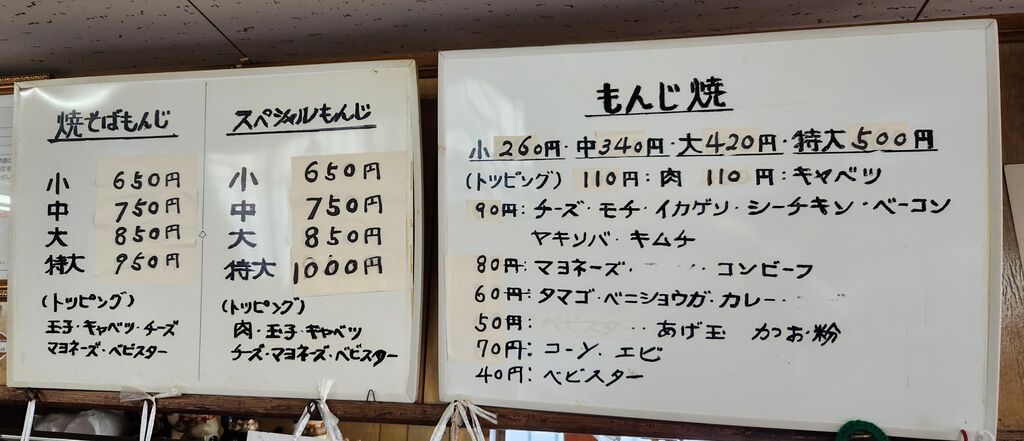 焼そばもんじ
小 650円
中 750円
大 850円
特大 950円
(トッピング)
玉子・キャベツ・チーズ
マヨネーズ・ベビスター
スペシャルもんじ
小 650円
中 750円
大 850円
特大 1000円
(トッピング)
肉・玉子・キャベツ
チーズ・マヨネーズ・ベビスター
もんじ焼
小260円・中340円・大420円・特大500円
(トッピング) 110円:肉 110円:キャベツ
90円:チーズ・モチ・イカゲソ・シーチキン・ベーコン
ヤキソバ・キムチ
80円:マヨネーズ・ コンビーフ
60円:タマゴ・ベニショウガ・カレー・
50円: あげ玉 かつお粉
70円:コーン・エビ
40円:ベビスター